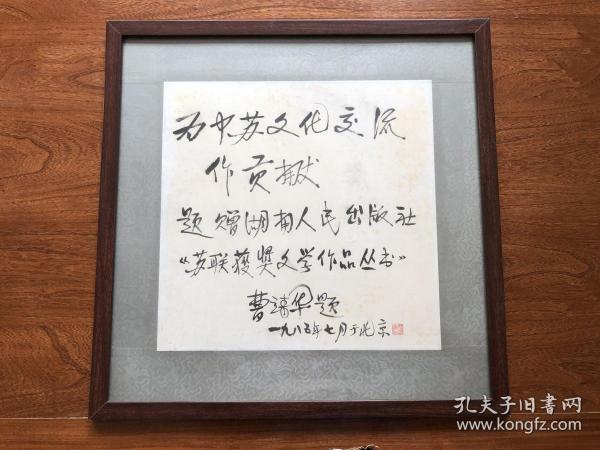 为中苏文化交流
作贡献
题赠湖南人民出版社
“苏联获奖文学作品丛书”
曹靖华题
一九八五年七月于北京
孔夫子旧书网
www.kongfz.com